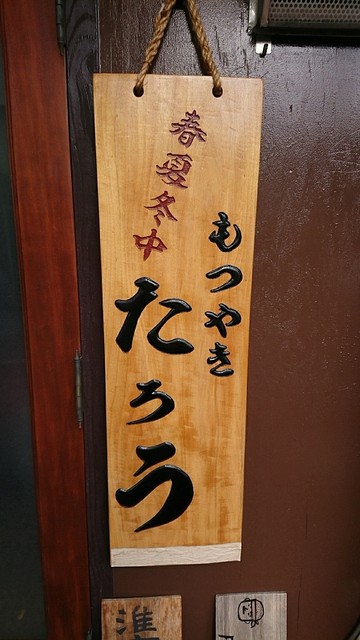 もつやき
春夏冬中
たろう
準